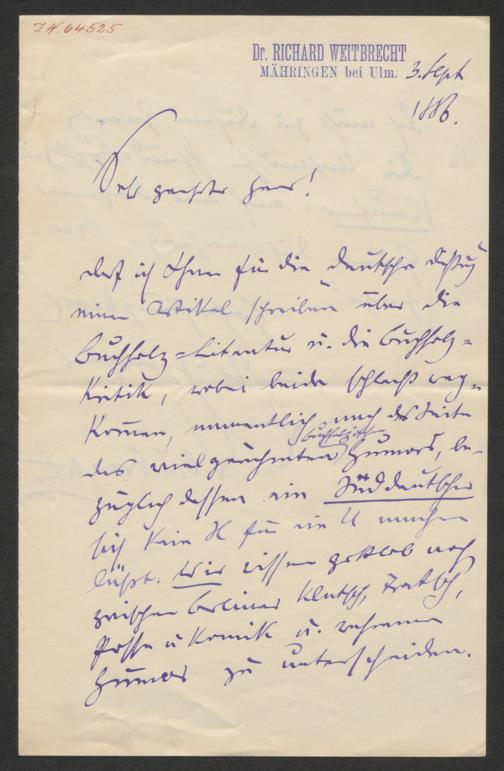 I.N. 64525
Dr. RICHARD WEITBRECHT
MÄHRINGEN bei Ulm.
3. Sept
1886.
Sehr geehrter Herr!
Darf ich Ihnen für die deutsche Dichtung
einen Artikel schreiben über die
Buchholz=Literatur u. die Buchholz=
Kritik, wobei beide schlecht weg=
kommen, namentlich nach der Seite
des vielgerühmten Buchholzischen Humors, be-
züglich dessen ein Süddeutscher
sich kein X für ein U machen
läßt. Wir wissen gottlob noch
zwischen Berliner Klatsch, Tratsch,
Posse u Komik u. wahrem
Humor zu unterscheiden.